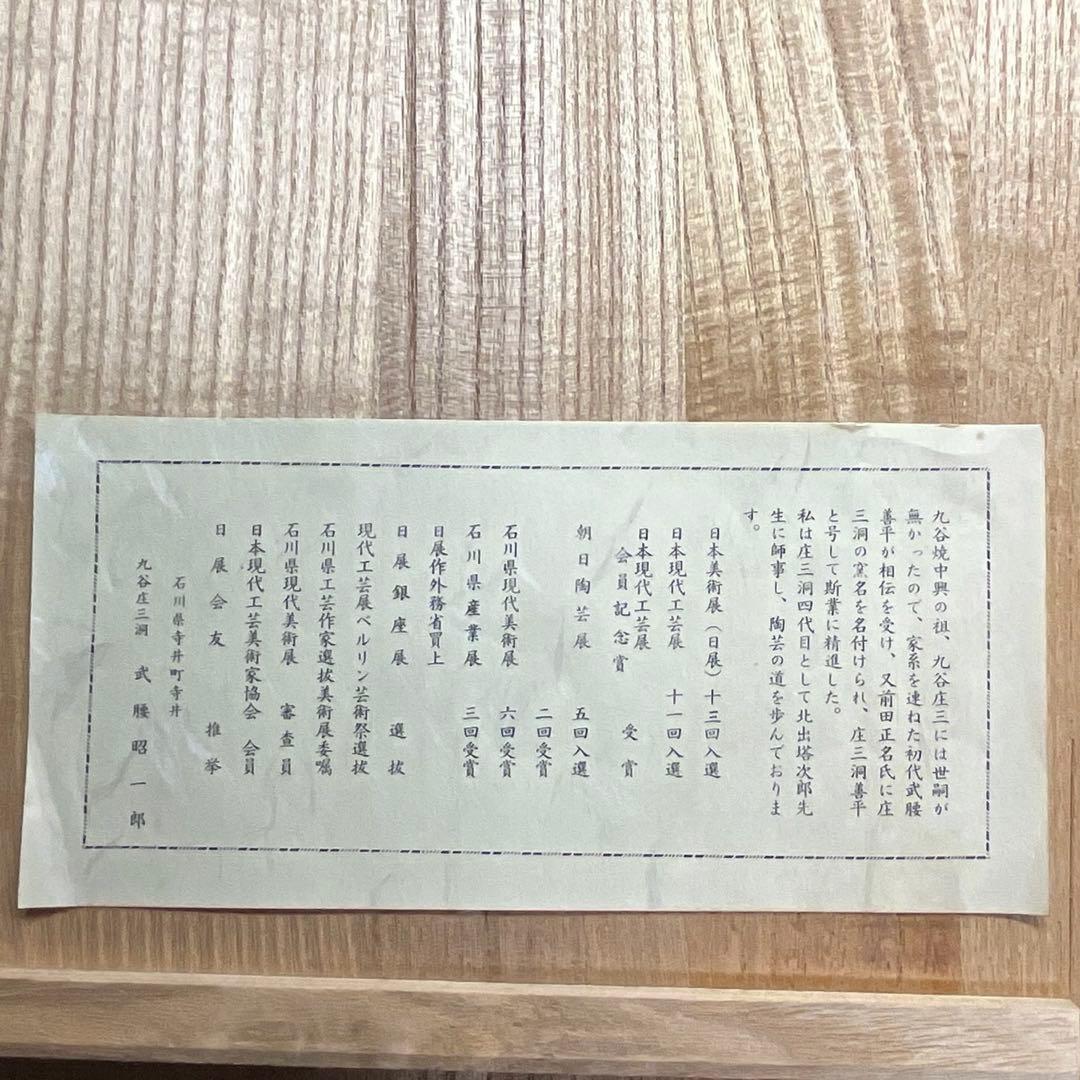 九谷焼中興の祖、九谷庄三には世嗣が
無かったので、家系を連ねた初代武腰
善平が相伝を受け、又前田正名氏に庄
三洞の窯名を名付けられ、庄三洞善平
と号して斯業に精進した。
私は庄三洞四代目として北出塔次郎先
生に師事し、陶芸の道を歩んでおりま
す。
日本美術展(日展)十三回入選
日本現代工芸展 十一回入選
日本現代工芸展
会員記念賞 受賞
朝日陶芸展 五回入選
二回受賞
石川県現代美術展 六回受賞
石川県産業展 三回受賞
日展作外務省買上
日展銀座展 選抜
現代工芸展ベルリン芸術祭選抜
石川県工芸作家選抜美術展委嘱
石川県現代美術展 審査員
日本現代工芸美術家協会 会員
日展会友 推挙
石川県寺井町寺井
九谷庄三洞 武腰昭一郎